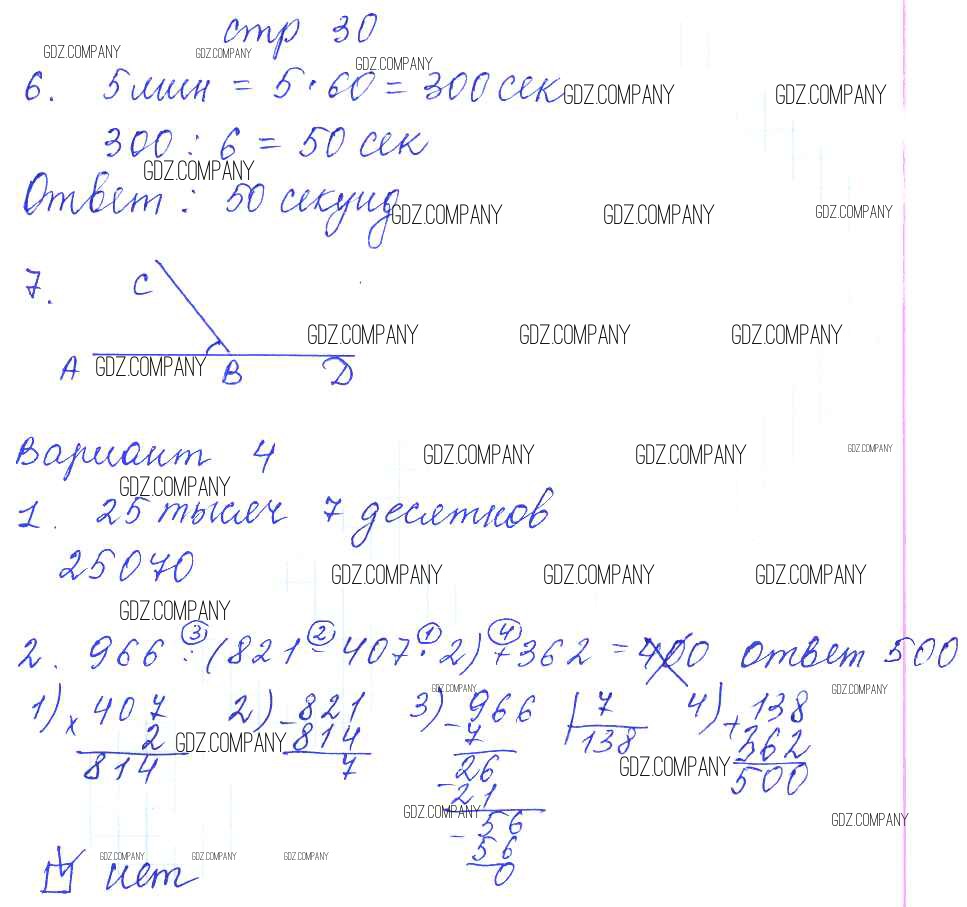 стр 30
GDZ.COMPANY GDZ.COMPANY GDZ.COMPANY
6. 5 мин = 5 · 60 = 300 сек GDZ.COMPANY GDZ.COMPANY
300 : 6 = 50 сек
GDZ.COMPANY
Ответ : 50 секунд GDZ.COMPANY GDZ.COMPANY GDZ.COMPANY
7. C
GDZ.COMPANY GDZ.COMPANY GDZ.COMPANY
A GDZ.COMPANY B D
Вариант 4 GDZ.COMPANY GDZ.COMPANY GDZ.COMPANY
GDZ.COMPANY
1. 25 тысяч 7 десятков
25070 GDZ.COMPANY GDZ.COMPANY GDZ.COMPANY
GDZ.COMPANY
3 2 1 4
2. 966 : (821 - 407 · 2) + 362 = 400 ответ 500
GDZ.COMPANY GDZ.COMPANY
1) x 407 2) - 821 3) - 966 7 4) + 138
2 GDZ.COMPANY 814 7 138 362
814 7 26 GDZ.COMPANY 500
- 21
GDZ.COMPANY GDZ.COMPANY
- 56
56
GDZ.COMPANY GDZ.COMPANY GDZ.COMPANY
нет 0